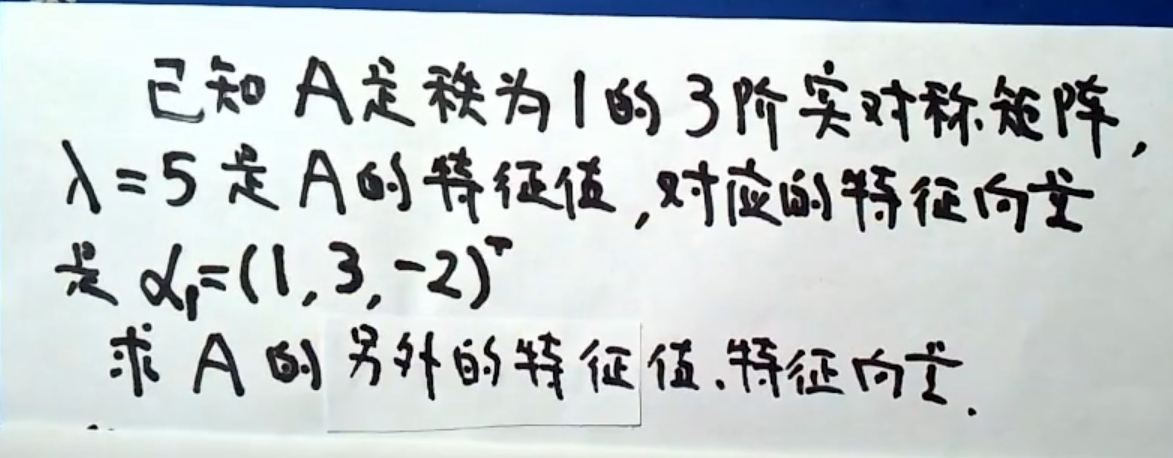 已知 A是秩为1的3阶实对称矩阵,
λ=5是A的特征值,对应的特征向量
是 α₁=(1,3,-2)ᵀ
求A的另外的特征值、特征向量.